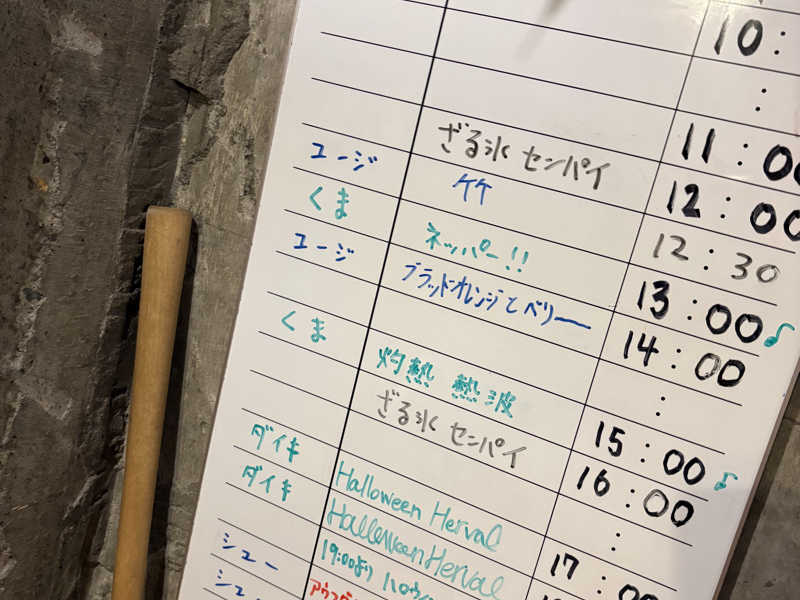 10:
:
11:00
ざる氷 センパイ 12:00
ユージ ケケ 12:30
くま ネッパー!! 13:00♪
ユージ ブラッドオレンジとベリー 14:00
:
くま 灼熱 熱波 15:00♪
ざる氷 センパイ 16:00
:
ダイキ Halloween Herval 17:00
ダイキ Halloween Herval
シュー 19:00より ハロウィ
シュー アウフグ